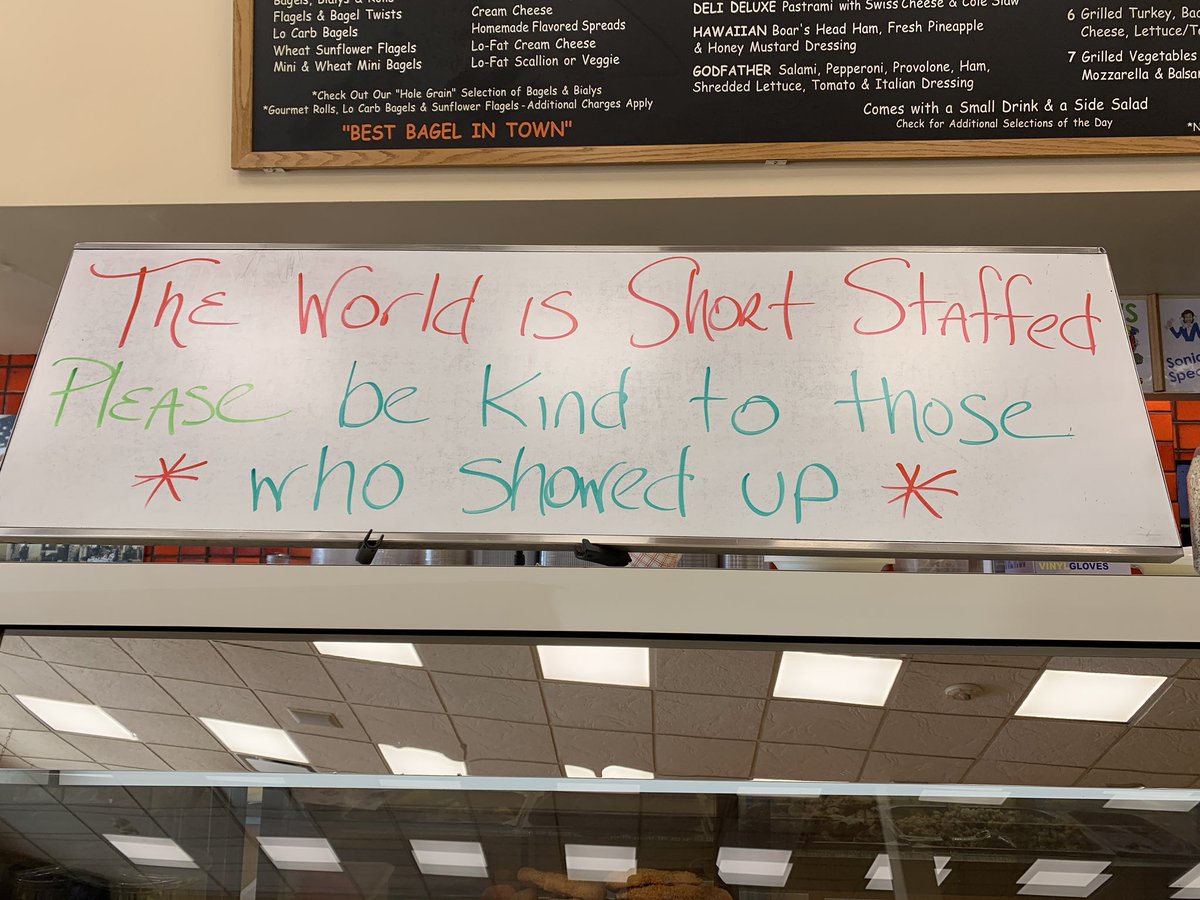 Bagels, Bialys & Rolls
Flagels & Bagel Twists
Lo Carb Bagels
Wheat Sunflower Flagels
Mini & Wheat Mini Bagels
*Check Out Our "Hole Grain" Selection of Bagels & Bialys
*Gourmet Rolls, Lo Carb Bagels & Sunflower Flagels - Additional Charges Apply
"BEST BAGEL IN TOWN"
Cream Cheese
Homemade Flavored Spreads
Lo-Fat Cream Cheese
Lo-Fat Scallion or Veggie
DELI DELUXE Pastrami with Swiss Cheese & Cole Slaw
HAWAIIAN Boar's Head Ham, Fresh Pineapple
& Honey Mustard Dressing
GODFATHER Salami, Pepperoni, Provolone, Ham,
Shredded Lettuce, Tomato & Italian Dressing
6 Grilled Turkey,
Cheese, Lettuce/
7 Grilled Vegetables
Mozzarella &
Comes with a Small Drink & a Side Salad
Check for Additional Selections of the Day
The World is Short Staffed
Please be Kind to those
* who showed up *
VINYL GLOVES